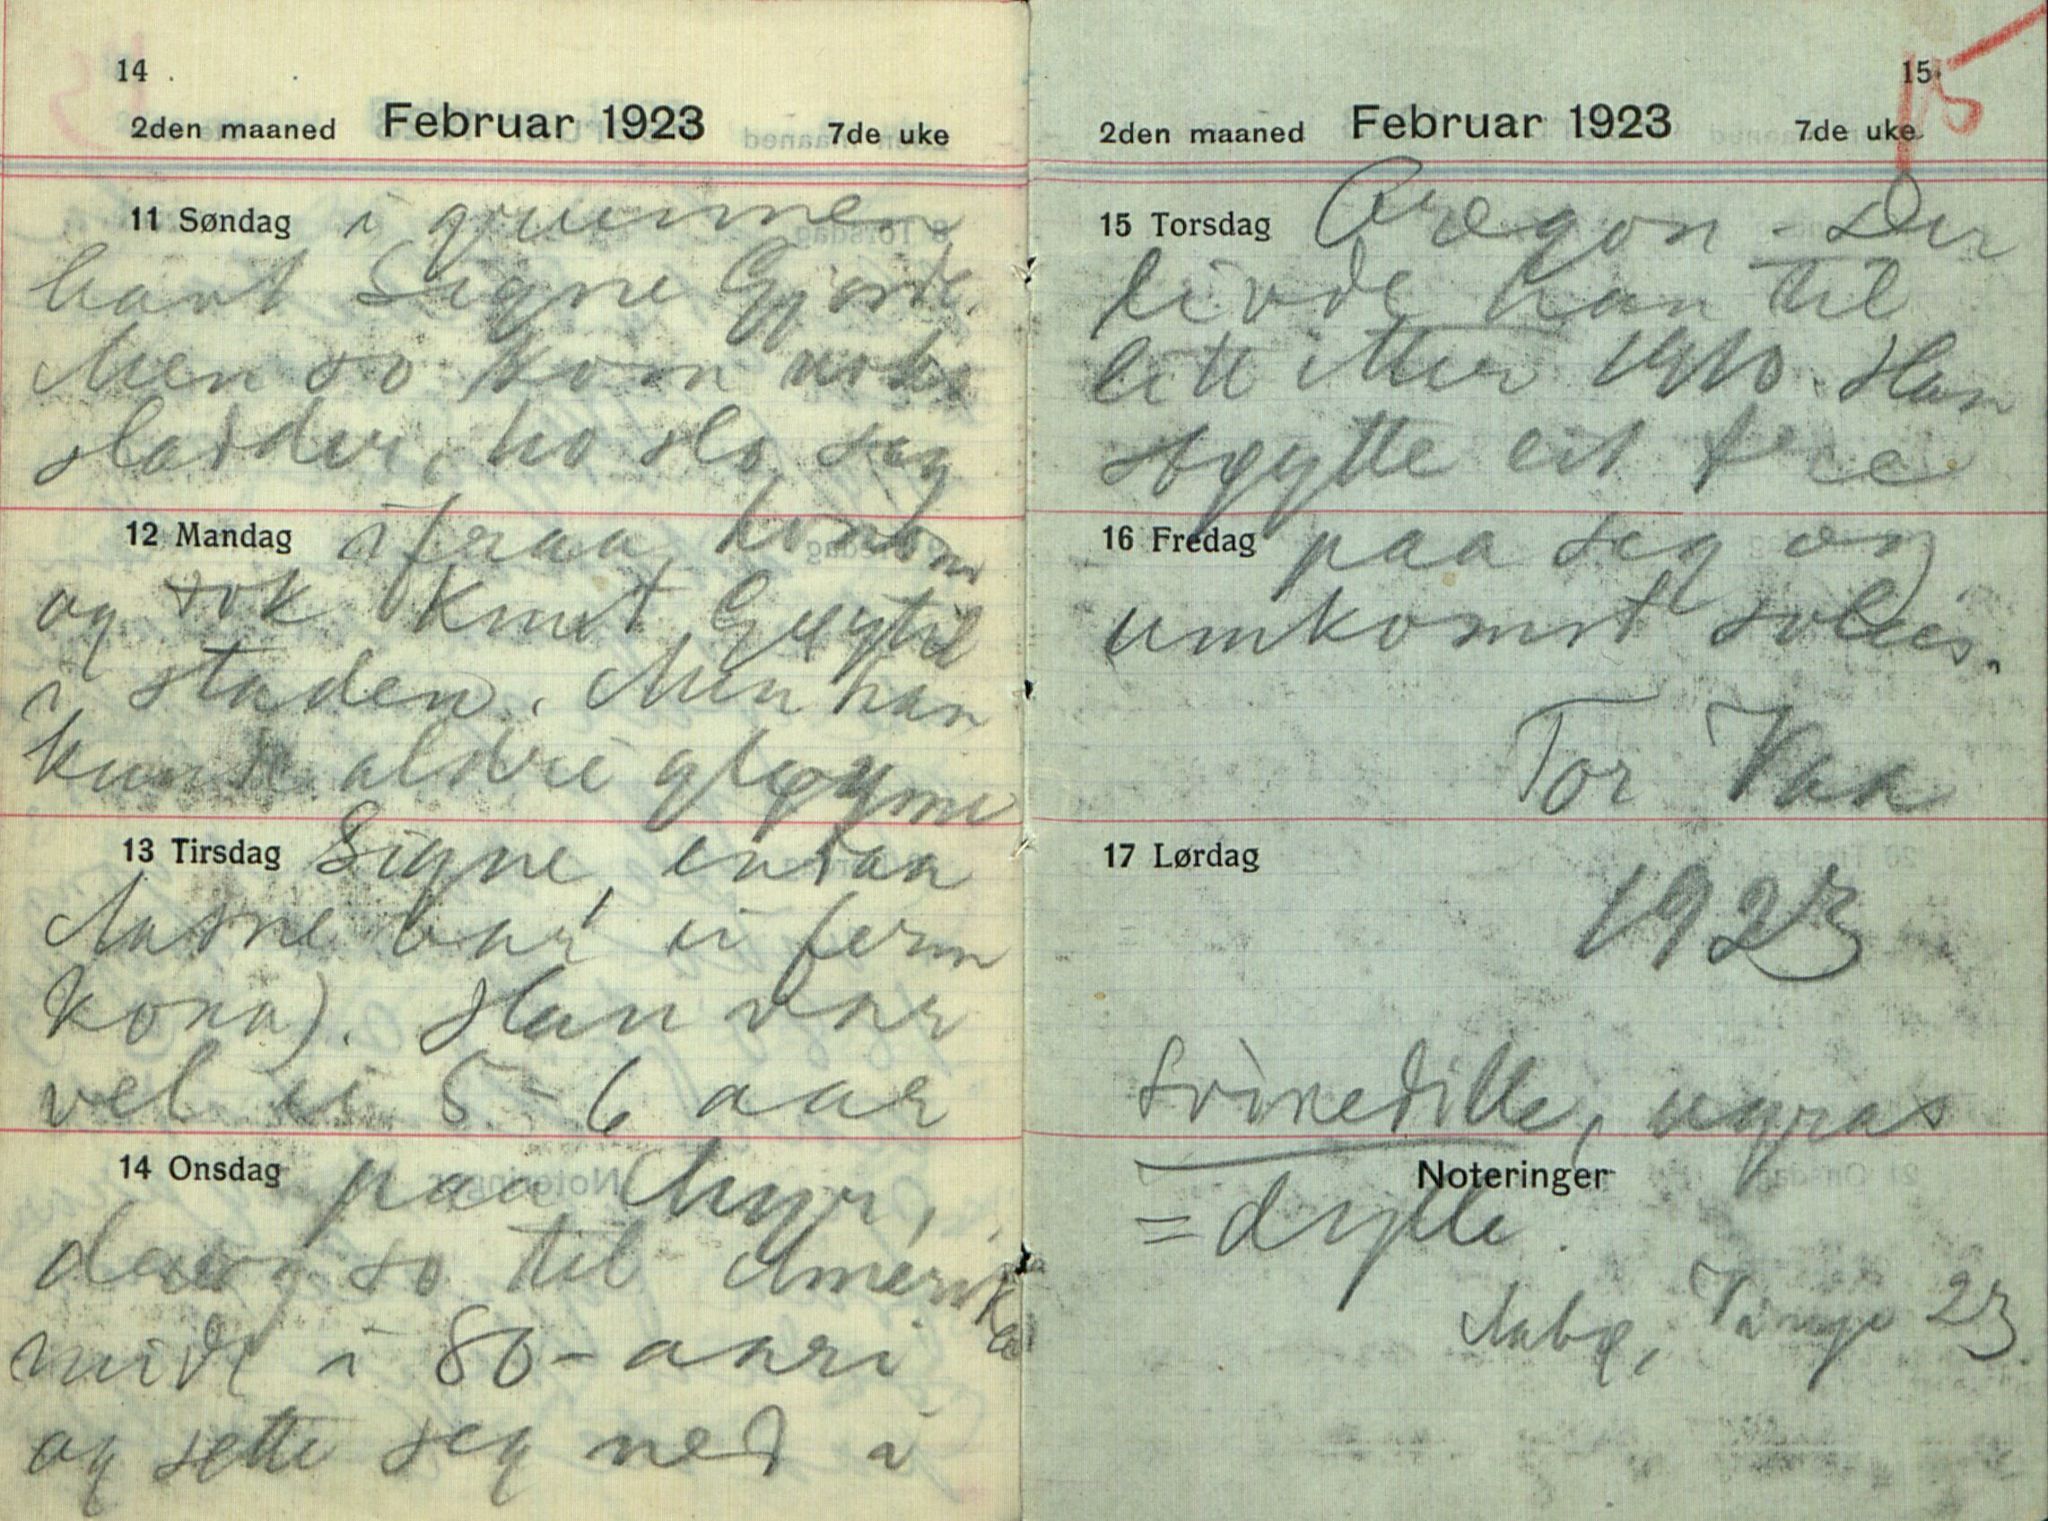 14
2den maaned Februar 1923 7de uke
11 Søndag i gruunnen
bant Signe Gjorde.
Men so kom noko
sladder, ho slo seg
12 Mandag ifraa honom
og tok Knut
i staden. Men han
kunde aldri gløyme
13 Tirsdag Signe, endaa
Aasne var ei ferm
kona). Han var
vel ei 5-6 aar
14 Onsdag paa Myr,
derog so til Amerika
midt i 80-aari
og sette seg ned i
15
15
2den maaned Februar 1923 7de uke
15 Torsdag Oregon - Der
livde han til
litt etter 1910. Han
støytte eit tre
16 Fredag paa seg og
umkomst soleis.
Tor Vaa
17 Lørdag
1923
Svinedille, ugras
Noteringer
= dylle.
Aabø, 23.